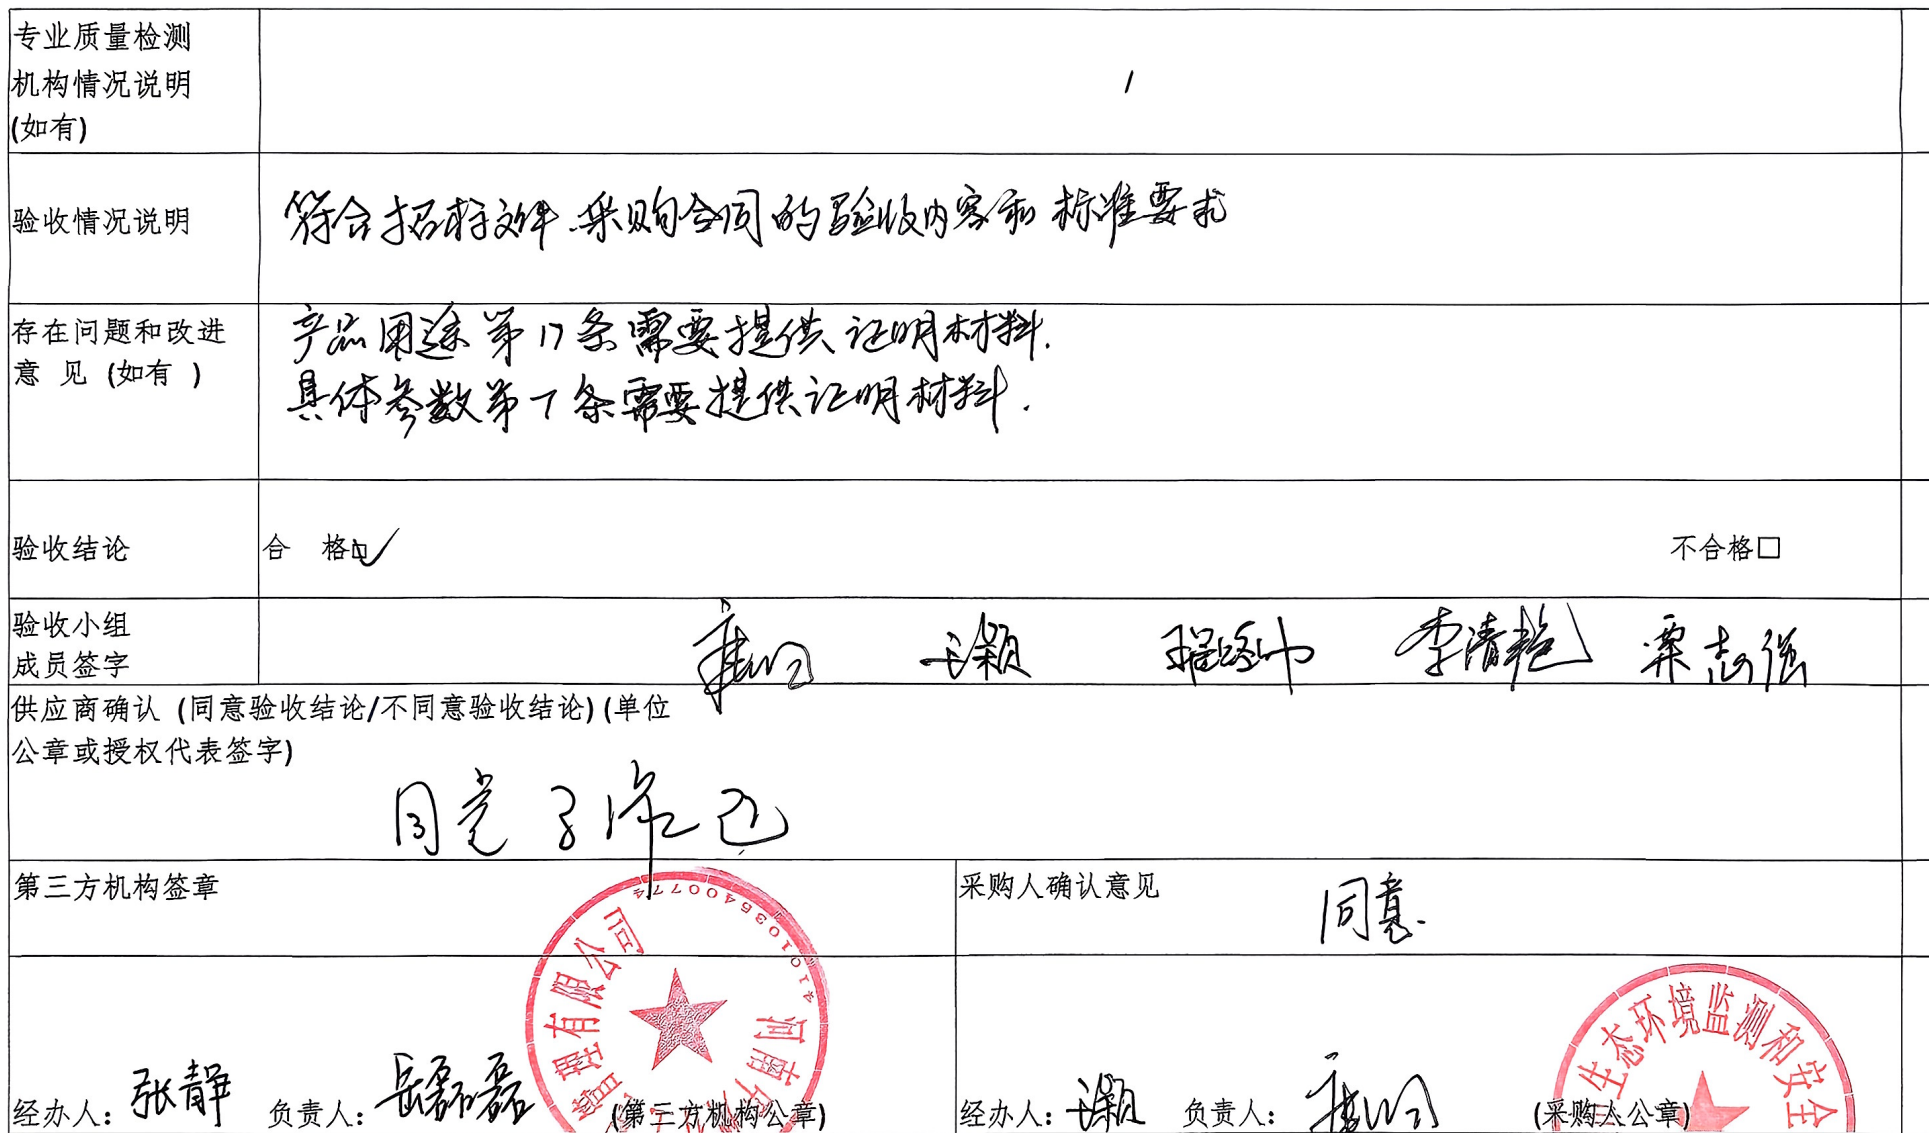 专业质量检测
机构情况说明
(如有)
/
验收情况说明
符合招标文件、采购合同的验收内容和标准要求
存在问题和改进
意 见 (如有 )
产品用途第17条需要提供证明材料.
具体参数第7条需要提供证明材料.
验收结论
合 格☑
不合格□
验收小组
成员签字
王颖
李清艳
栗志强
供应商确认 (同意验收结论/不同意验收结论) (单位
公章或授权代表签字)
同意
第三方机构签章
采购人确认意见
同意.
经办人: 张静 负责人: 岳磊磊 (第三方机构公章)
4101036400774
河南
管理有限公司
经办人: 王颖 负责人:
(采购人公章)
生态环境监测和安全